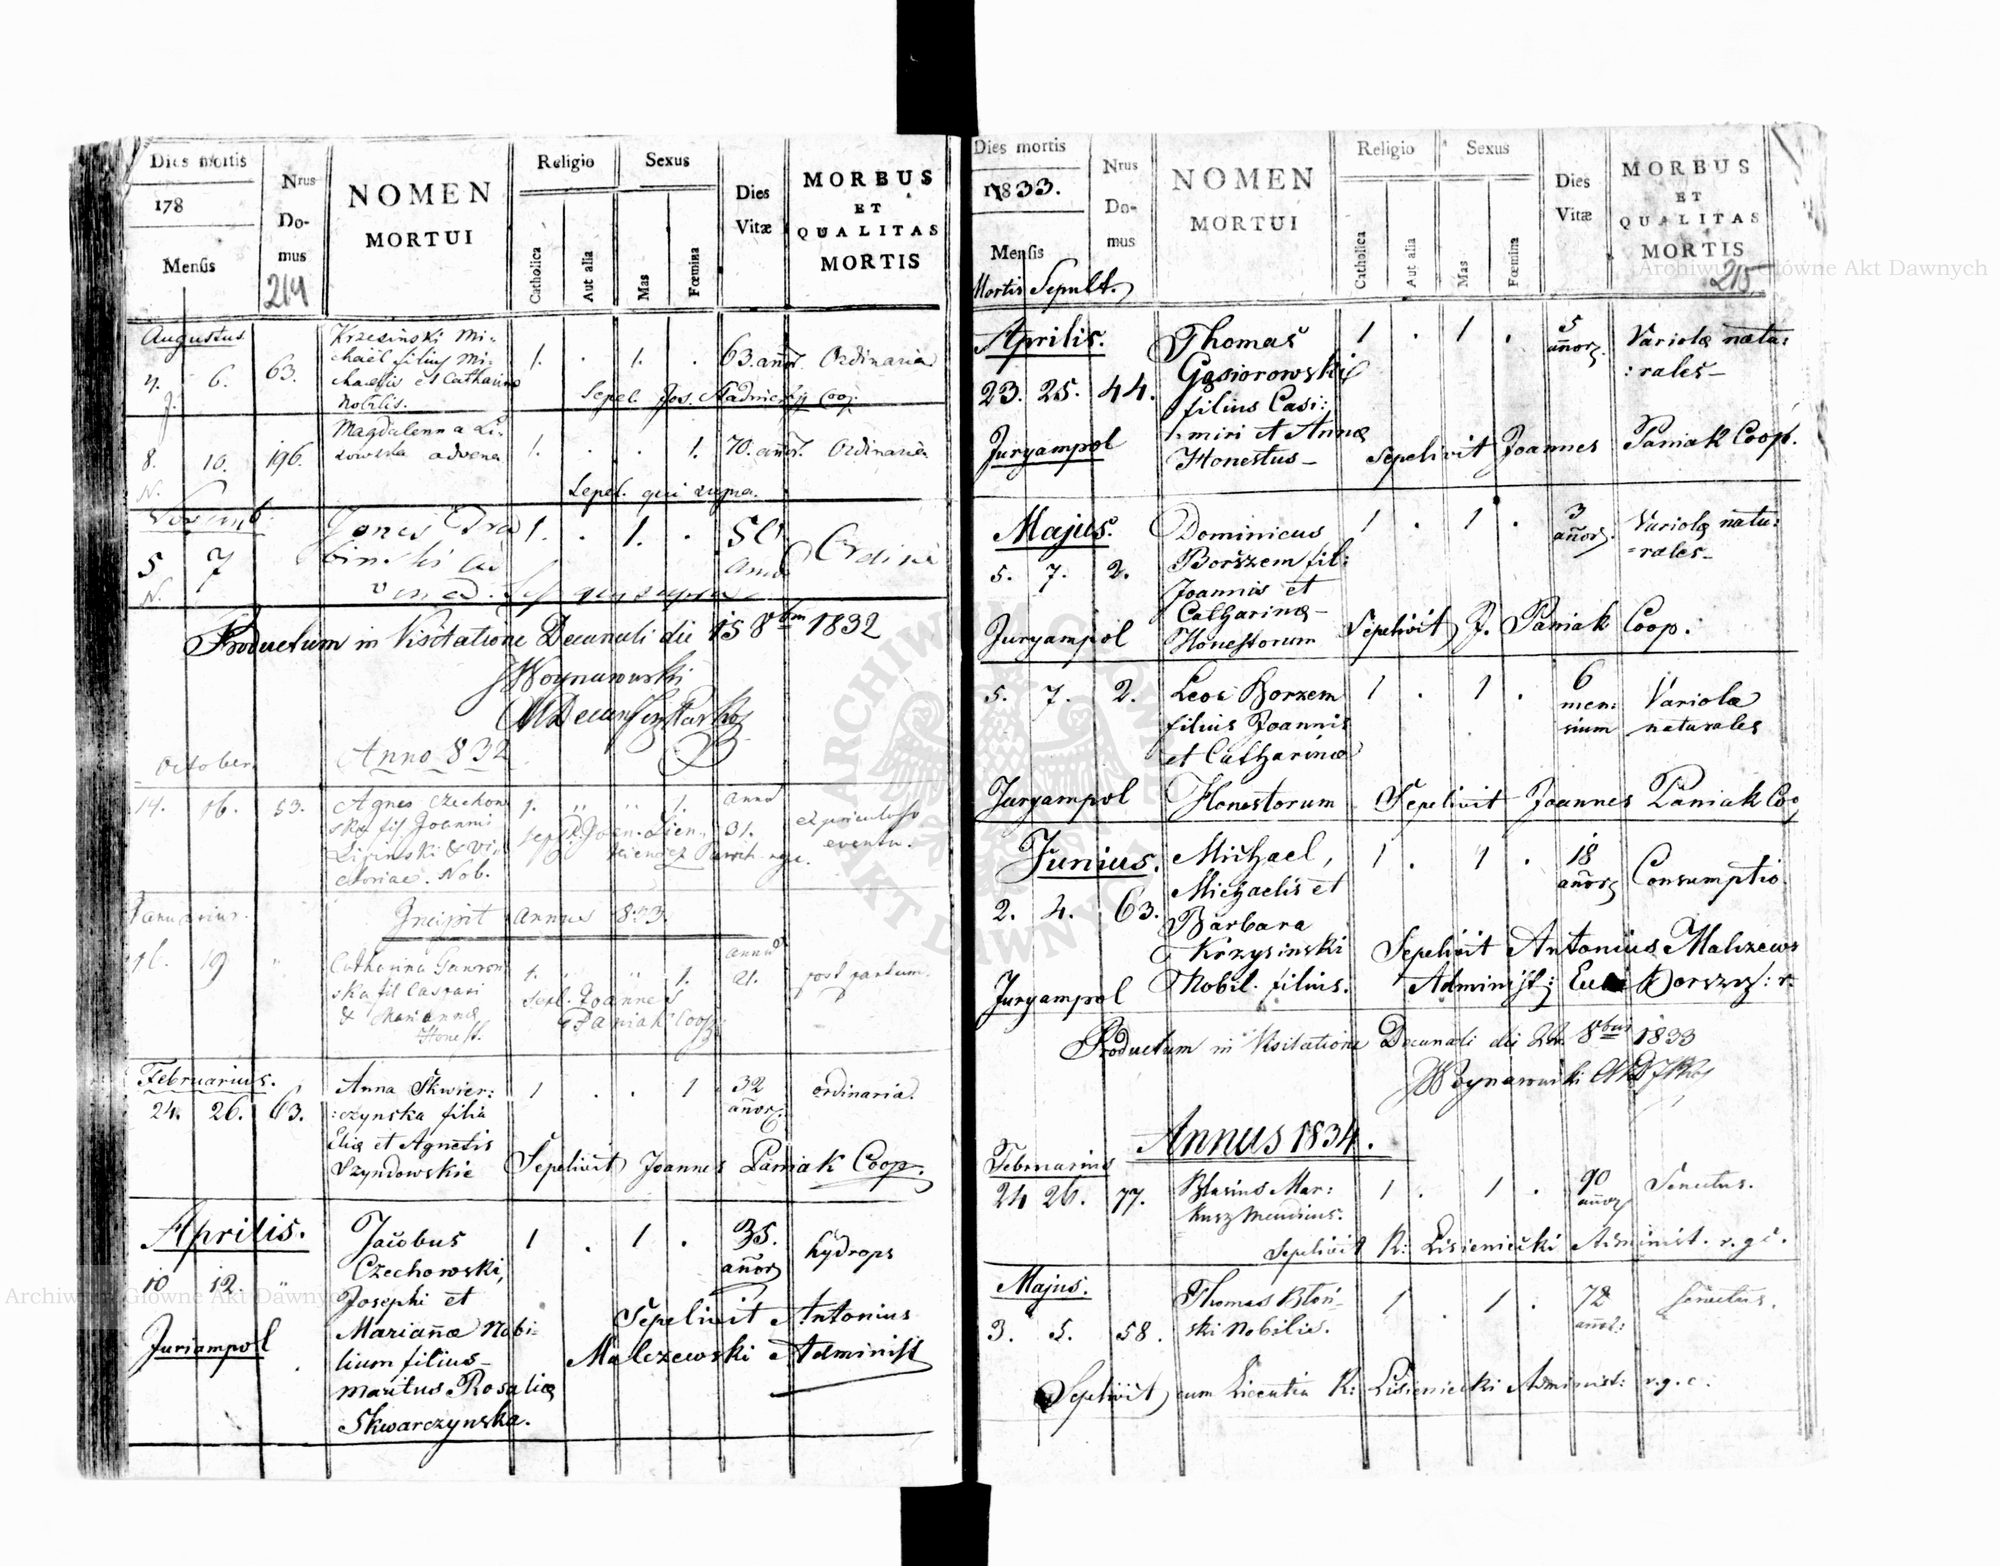 Dies mortis
178
Mensis
Nrus
Do-
mus
214
NOMEN
MORTUI
Religio
Catholica
Aut alia
Sexus
Mas
Fœmina
Dies
Vitæ
MORBUS
ET
QUALITAS
MORTIS
Augustus
4. 6. 63. Krzesinski Mi-
chaël filius Mi-
chaelis et Catharina
Nobilis.
1. . 1. . 63. añor. Ordinaria
Sepel. Jos. Stadnicky Coop.
8. 10. 196. Magdalenna Li-
zowska advena
1. . . 1. 70. añor. Ordinaria
Sepel. qui supra.
Novemb.
5 7
1. . 1. . 50
Productum in Visitatione Decanali die 15 8bm 1832
Woynarowski
Anno 832
October
14. 16. 53. Agnes Czechow
ska fil Joannis
Lipinski & Vi-
ctoriae. Nob.
1. " " 1. Anno
31.
eventu.
Januarius.
Incipit annus 833.
16. 19 " Catharina Gawron
ska fil Caspari
& Marianna
Honest.
1. " " 1. anno
21. post partum.
Sepel. Joannes
Paniak Coop.
Februarius.
24. 26. 63. Anna Skwier:
:czynska filia
Eliæ et Agnetis
Szyndowskie
1 . . 1 32
añor. ordinaria.
Sepelivit Joannes Paniak Coop.
Aprilis.
10 12. " Jacobus
Czechowski,
Josephi et
Mariañæ Nobi-
lium filius-
maritus Rosaliæ
Skwarczynska.
Juriampol
1 . 1 . 35.
añor hydrops
Sepelivit Antonius
Malczewski Administ
Dies mortis
1833.
Mensis
Mortis Sepult.
Nrus
Do-
mus
NOMEN
MORTUI
Religio
Catholica
Aut alia
Sexus
Mas
Fœmina
Dies
Vitæ
MORBUS
ET
QUALITAS
MORTIS
215
Archiwum Główne Akt Dawnych
Aprilis.
23. 25. 44.
Juryampol
Thomas
Gąsiorowski
filius Casi:
:miri et Annæ
Honestus-
1 . 1 . 5
añor. Variolæ natu:
:rales-
Sepelivit Joannes Paniak Coop.
Majus.
5. 7. 2.
Juryampol
Dominicus
Borszem fil:
Joannis et
Catharinæ-
Honestorum
1 . 1 . 3
añor. Variolæ natu:
=rales-
Sepelivit J. Paniak Coop.
5. 7. 2.
Juryampol
Leos Borzem
filius Joannis
et Catharinæ
Honestorum
1 . 1 . 6
men:
sium Variola
naturales
Sepelivit Joannes Paniak Coo
Junius.
2. 4. 63.
Juryampol
Michael,
Michaelis et
Barbara
Krzysinski
Nobil. filius.
1 . 1 . 18
añor Consumptio
Sepelivit Antonius Malczews
Administ:
Productum in Visitatione Decanali die 22. 8bris 1833
Woynarowski
Annus 1834.
Februarius
24 26. 77. Blasius Mar:
kusz Mendicus.
1 . 1 . 90
añor Senectus.
Sepelivit R: Lisieniecki Administ. r. g. c.
Majus.
3. 5. 58. Thomas Błoń-
ski Nobilis.
1 . 1 . 72
añor: Senectus.
Sepelivit cum Licentia R: Lisieniecki Administ: r. g. c.
Archiwum Główne Akt Dawnych
ARCHIWUM GŁÓWNE AKT DAWNYCH